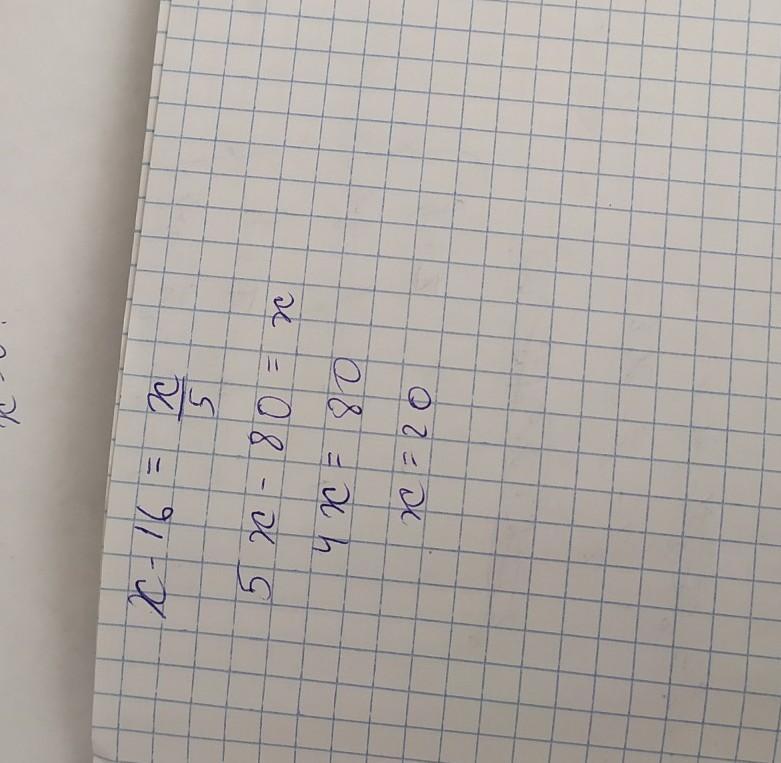 x - 16 = x/5
5x - 80 = x
4x = 80
x = 20